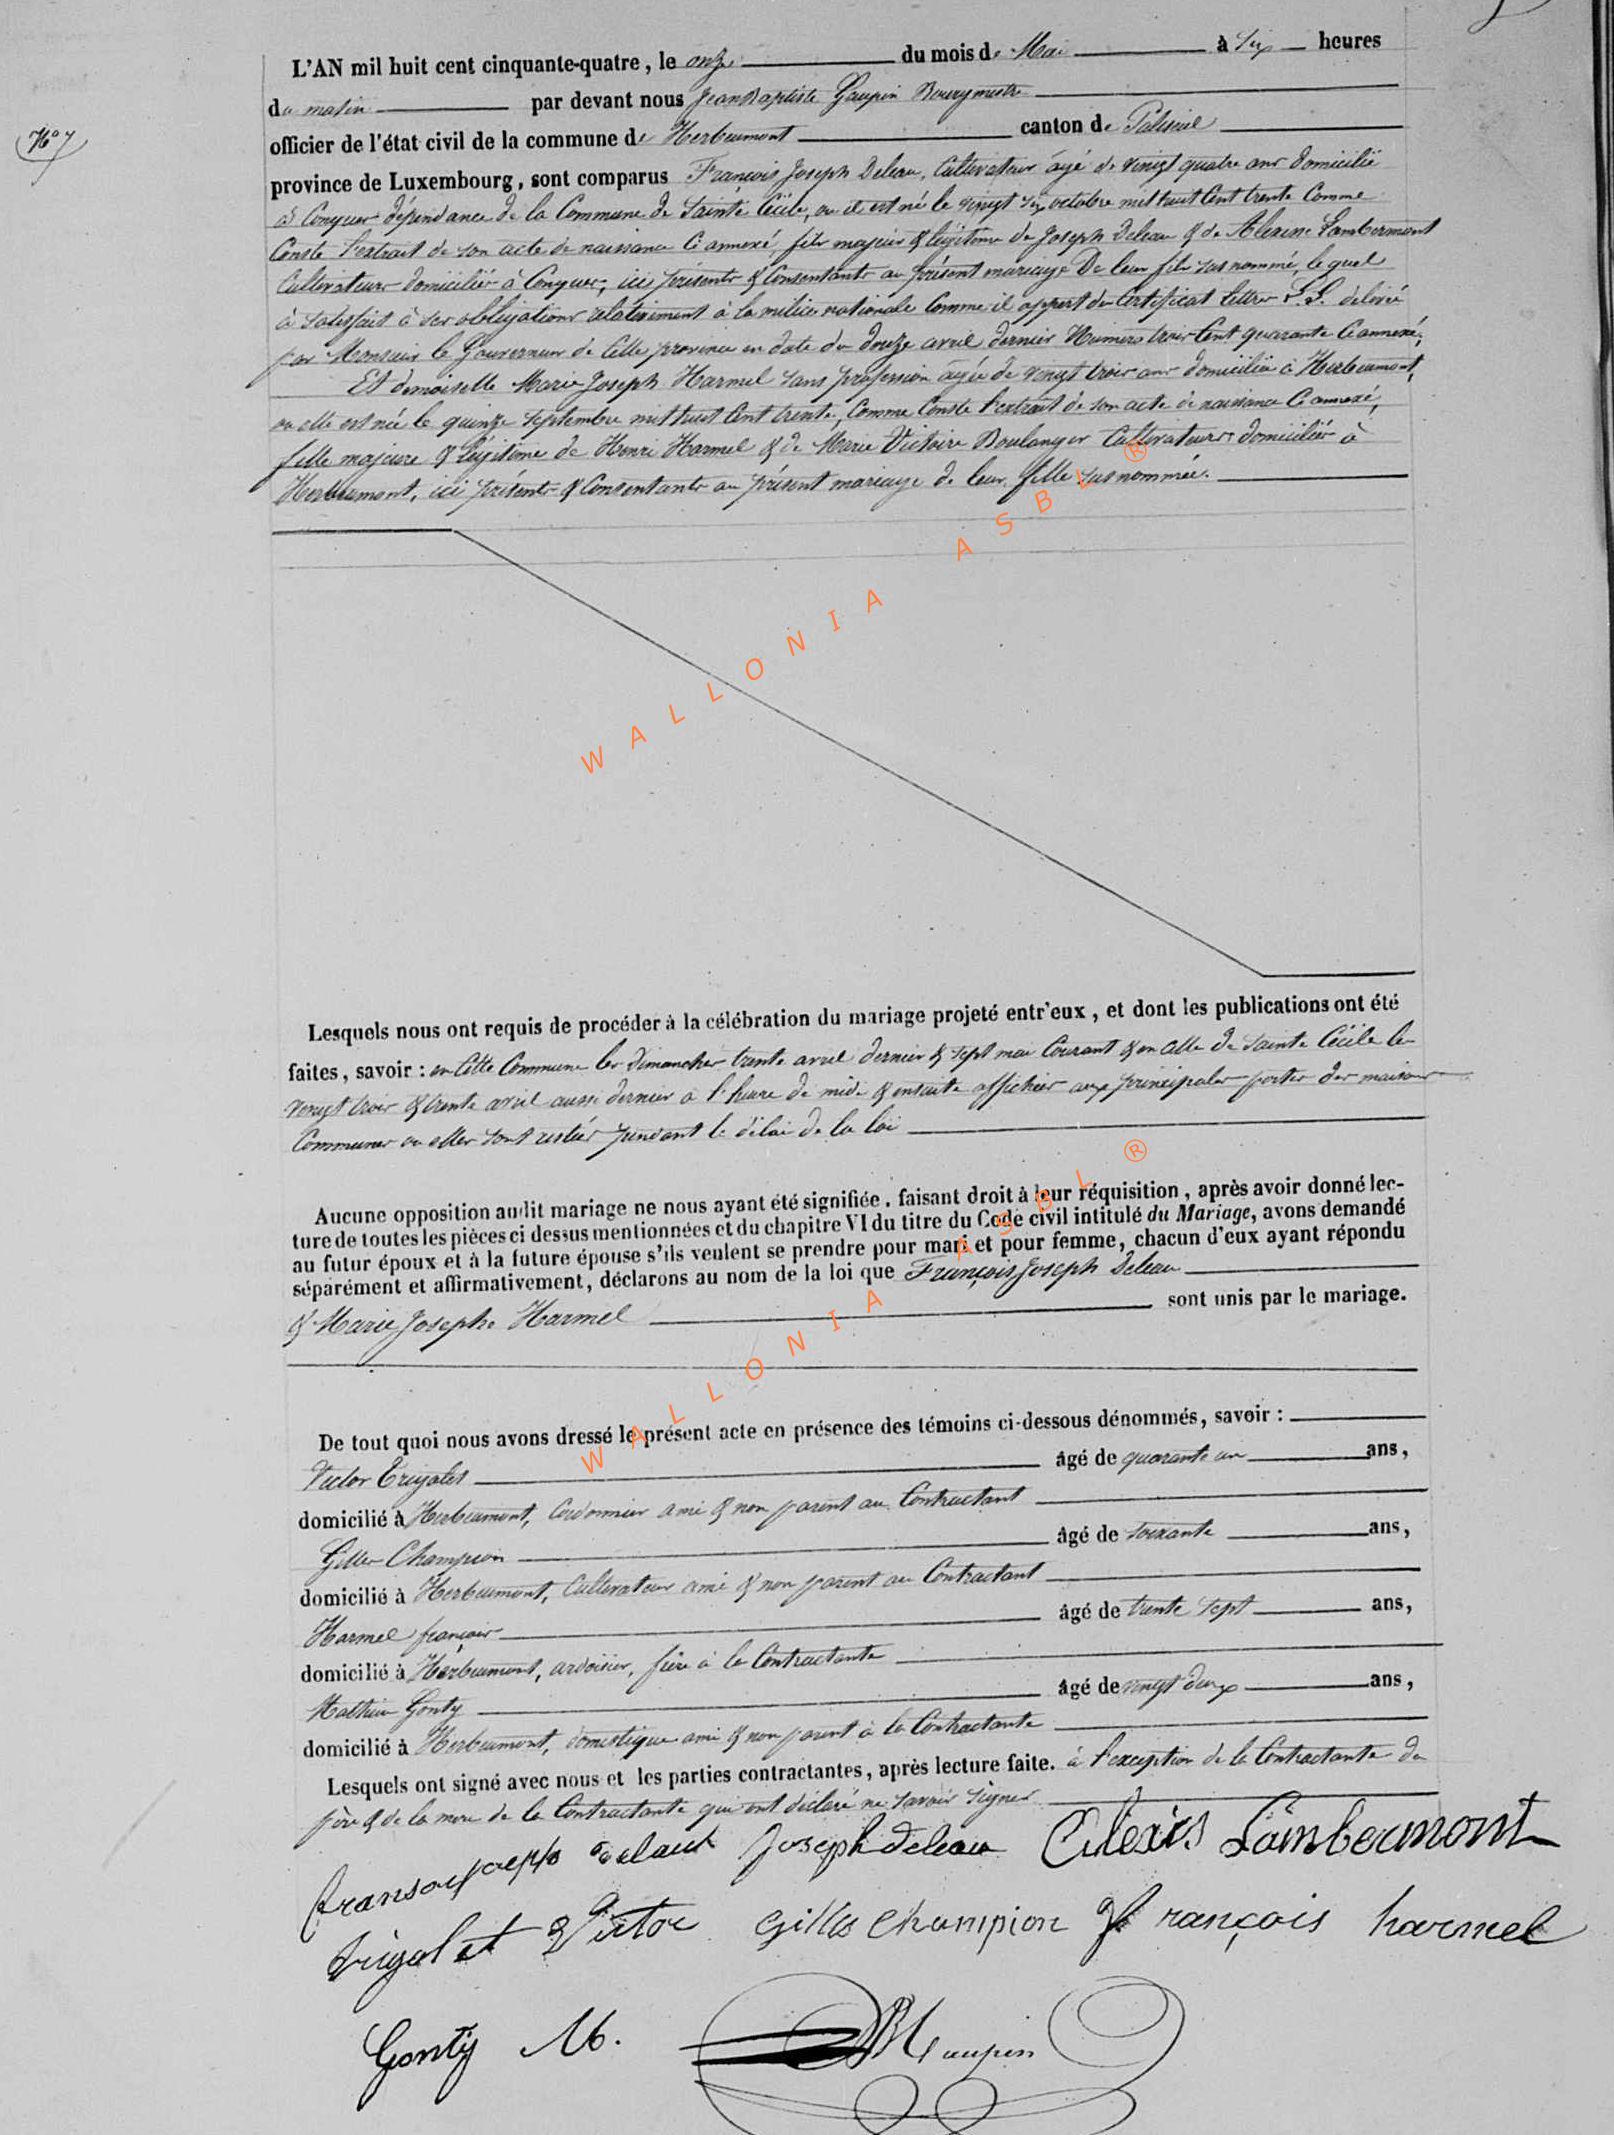 N° 7
L'AN mil huit cent cinquante-quatre, le onze du mois de Mai à six heures
du matin par devant nous Jean Baptiste Gaupin Bourgmestre
officier de l'état civil de la commune de Herbeumont canton de Paliseul
province de Luxembourg, sont comparus François Joseph Deleau, Cultivateur âgé de vingt quatre ans domicilié
à Conques dépendance de la Commune de Sainte Cécile, ou il est né le vingt six octobre mil huit Cent trente Comme
Conste l'extrait de son acte de naissance Ci annexé, fils majeur & légitime de Joseph Deleau & de Alexise Lambermont
Cultivateurs domiciliés à Conques, ici présents & Consentants au présent mariage De leur fils sus nommé, lequel
à satisfait à ses obligations relativement à la milice nationale Comme il appert du Certificat lettre L.L. délivré
par Monsieur le Gouverneur de Cette province en date du douze avril dernier Numéro trois Cent quarante Ci annexé;
Et demoiselle Marie Joseph Harmel sans profession âgée de vingt trois ans domiciliée à Herbeumont,
ou elle est née le quinze septembre mil huit Cent trente, Comme Conste l'extrait de son acte de naissance Ci annexé,
fille majeure & légitime de Henri Harmel & de Marie Victoire Boulanger Cultivateurs domiciliés à
Herbeumont, ici présents & Consentants au présent mariage de leur fille sus nommée.
WALLONIA ASBL ®
Lesquels nous ont requis de procéder à la célébration du mariage projeté entr'eux, et dont les publications ont été
faites, savoir : en Cette Commune les dimanches trente avril dernier & sept mai Courant & en Celle de Sainte Cécile les
vingt trois & trente avril aussi dernier à l'heure de midi & ensuite affichées aux principales portes des maisons
Communes ou elles sont restées pendant le délai de la loi
Aucune opposition audit mariage ne nous ayant été signifiée, faisant droit à leur réquisition, après avoir donné lec-
ture de toutes les pièces ci dessus mentionnées et du chapitre VI du titre du Code civil intitulé du Mariage, avons demandé
au futur époux et à la future épouse s'ils veulent se prendre pour mari et pour femme, chacun d'eux ayant répondu
séparément et affirmativement, déclarons au nom de la loi que François Joseph Deleau
& Marie Josephe Harmel sont unis par le mariage.
WALLONIA ASBL ®
De tout quoi nous avons dressé le présent acte en présence des témoins ci-dessous dénommés, savoir :
Victor Trigalet âgé de quarante un ans,
domicilié à Herbeumont, Cordonnier ami & non parent au Contractant
Gilles Champion âgé de soixante ans,
domicilié à Herbeumont, Cultivateur ami & non parent au Contractant
Harmel françois âgé de trente sept ans,
domicilié à Herbeumont, ardoisier, frère à la Contractante
Mathieu Gonty âgé de vingt deux ans,
domicilié à Herbeumont, domestique ami & non parent à la Contractante
Lesquels ont signé avec nous et les parties contractantes, après lecture faite. à l'exception de la Contractante du
père & de la mère de la Contractante qui ont déclaré ne savoir signer
fransoi joseph delaux Joseph deleau Alexis Lambermont
trigalet Victor Gilles Champion François harmel
Gonty M. JB Gaupin